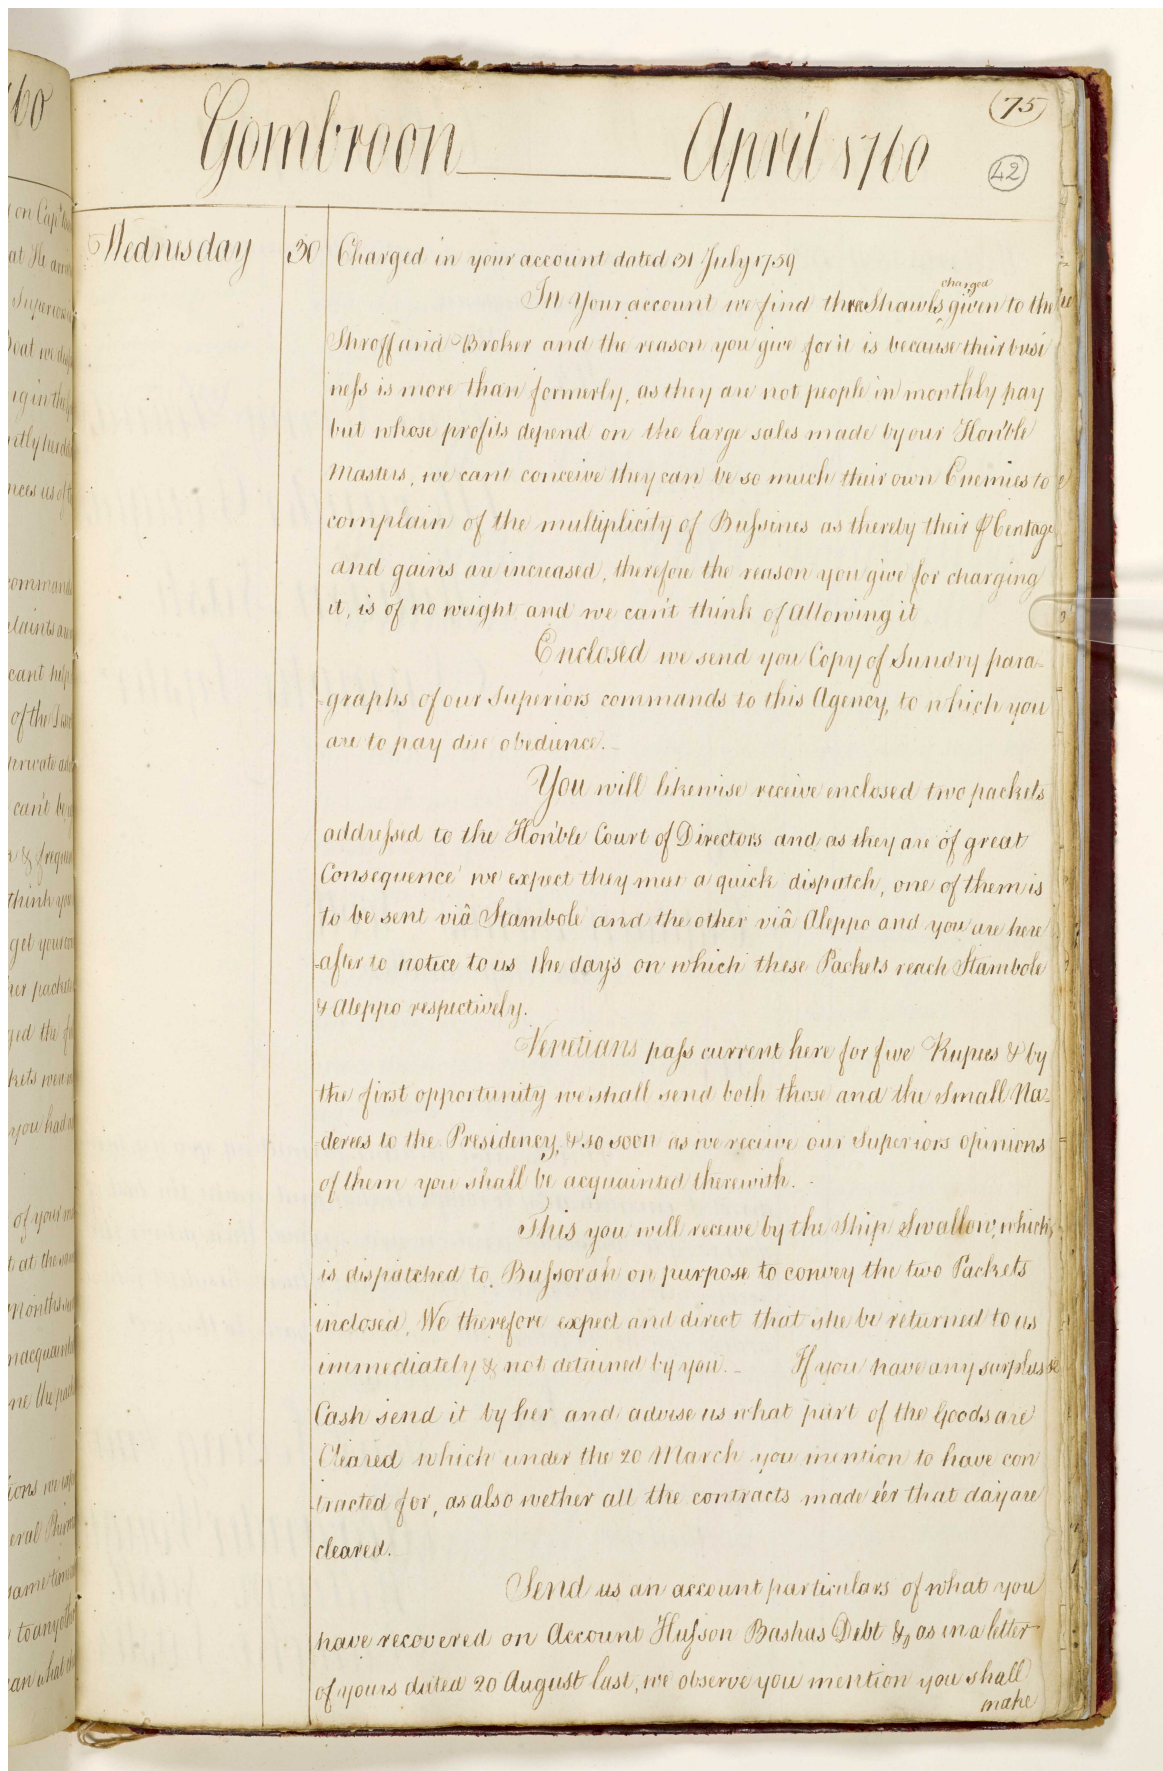 (75)
Gombroon April 1760
42
Wednesday 30 Charged in your account dated 31 July 1759
charged
In Your account we find three Shawls given to the
Shroff and Broker and the reason you give for it is because their busi
ness is more than formerly, as they are not people in monthly pay
but whose profits depend on the large sales made by our Hon'ble
Masters, we cant conceive they can be so much their own Enemies to
complain of the multiplicity of Bussines as thereby their ⅌ Centage
and gains are increased, therefore the reason you give for charging
it, is of no weight and we can't think of Allowing it
Enclosed we send you Copy of Sundry para-
-graphs of our Superiors commands to this Agency, to which you
are to pay due obedience. _
You will likewise receive enclosed two packets
addressed to the Hon'ble Court of Directors and as they are of great
Consequence we expect they meet a quick dispatch, one of them is
to be sent viâ Stambole and the other viâ Aleppo and you are here
-after to notice to us the days on which these Packets reach Stambole
& Aleppo respectively.
Venetians pass current here for five Rupees & by
the first opportunity we shall send both those and the Small Na-
-derees to the Presidency, & so soon as we receive our Superiors opinions
of them you shall be acquainted therewith. -
This you will receive by the Ship Swallow, which
is dispatched to Bussorah on purpose to convey the two Packets
inclosed. We therefore expect and direct that she be returned to us
immediately & not detained by you. _ If you have any surplus
Cash send it by her and advise us what part of the Goods are
Cleared which under the 20 March you mention to have con
tracted for, as also wether all the contracts made e'er that day are
cleared.
Send us an account particulars of what you
have recovered on Account Husson Bashas Debt &ca as in a letter
of yours dated 20 August last, we observe you mention you shall
make